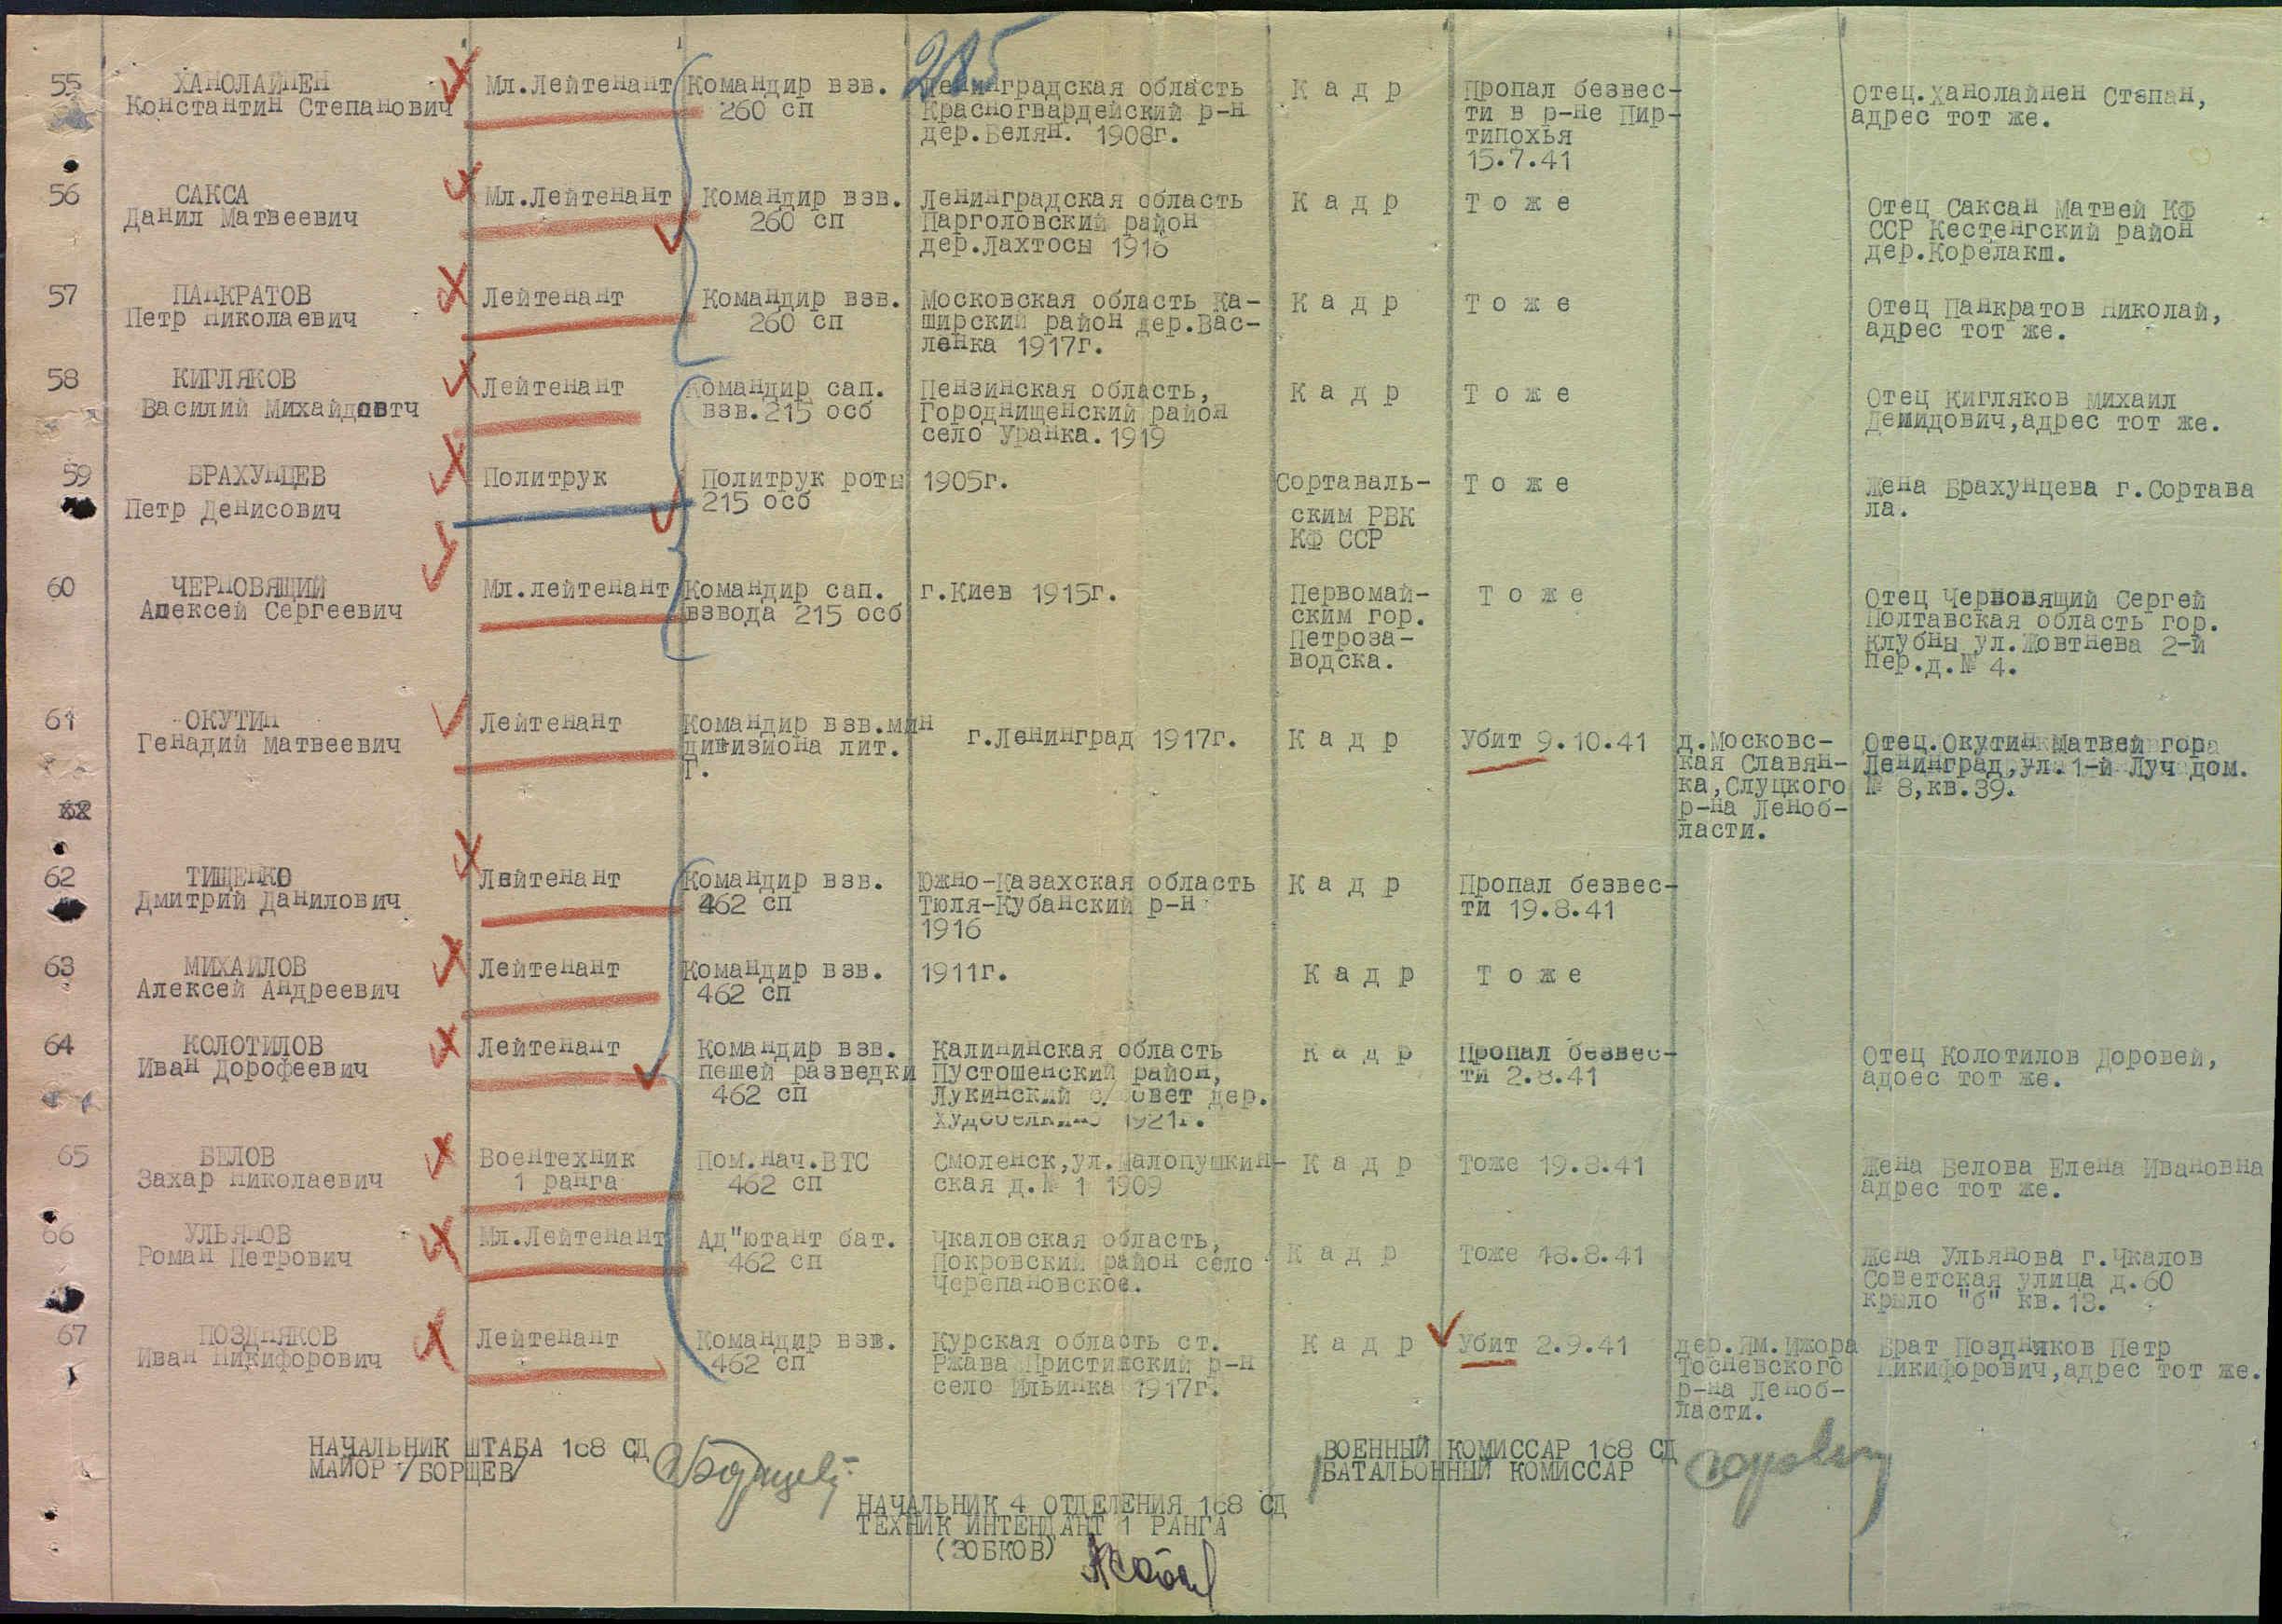 285
55
ХАНОЛАЙНЕН
Константин Степанович
Мл.Лейтенант
Командир взв.
260 сп
Ленинградская область
Красногвардейский р-н
дер.Велян. 1908г.
К а д р
Пропал безвес-
ти в р-не Пир-
типохья
15.7.41
Отец.Ханолайнен Степан,
адрес тот же.
56
САКСА
Данил Матвеевич
Мл.Лейтенант
Командир взв.
260 сп
Ленинградская область
Парголовский район
дер.Лахтосы 1916
К а д р
Т о ж е
Отец Саксан Матвей КФ
ССР Кестенгский район
дер.Корелакш.
57
ПАНКРАТОВ
Петр Николаевич
Лейтенант
Командир взв.
260 сп
Московская область Ка-
ширский район дер.Вас-
ленка 1917г.
К а д р
Т о ж е
Отец Панкратов Николай,
адрес тот же.
58
КИГЛЯКОВ
Василий
Лейтенант
Командир сап.
взв.215 осб
Пензинская область,
Городнищенский район
село Уранка.1919
К а д р
Т о ж е
Отец Кигляков Михаил
Демидович,адрес тот же.
59
БРАХУНЦЕВ
Петр Денисович
Политрук
Политрук роты
215 осб
1905г.
Сортаваль-
ским РВК
КФ ССР
Т о ж е
Жена Брахунцева г.Сортава
ла.
60
ЧЕРНОВЯЩИЙ
Алексей Сергеевич
Мл.лейтенант
Командир сап.
взвода 215 осб
г.Киев 1915г.
Первомай-
ским гор.
Петроза-
водска.
Т о ж е
Отец Черновящий Сергей
Полтавская область гор.
Клубны ул.Жовтнева 2-й
пер.д.№ 4.
61
ОКУТИН
Генадий Матвеевич
Лейтенант
Командир взв.мин
дивизиона лит.
Г.
г.Ленинград 1917г.
К а д р
Убит 9.10.41
д.Московс-
кая Славян-
ка,Слуцкого
р-на Леноб-
ласти.
Отец.Окутин Матвей гор
Ленинград,ул.1-й Луч дом.
№ 8,кв.39.
62
ТИЩЕНКО
Дмитрий Данилович
Лейтенант
Командир взв.
462 сп
Южно-Казахская область
Тюля-Кубанский р-н
1916
К а д р
Пропал безвес-
ти 19.8.41
63
МИХАЙЛОВ
Алексей Андреевич
Лейтенант
Командир взв.
462 сп
1911г.
К а д р
Т о ж е
64
КОЛОТИЛОВ
Иван Дорофеевич
Лейтенант
Командир взв.
пешей разведки
462 сп
Калининская область
Пустошенский район,
Лукинский с/совет дер.
1921г.
К а д р
Пропал безвес-
ти 2.8.41
Отец Колотилов Доровей,
адрес тот же.
65
БЕЛОВ
Захар Николаевич
Воентехник
1 ранга
Пом.Нач.ВТС
462 сп
Смоленск,ул.Малопушкин-
ская д.№ 1 1909
К а д р
Тоже 19.8.41
Жена Белова Елена Ивановна
адрес тот же.
66
УЛЬЯНОВ
Роман Петрович
Мл.Лейтенант
Ад"ютант бат.
462 сп
Чкаловская область,
Покровский район село
Черепановское.
К а д р
Тоже 18.8.41
Жена Ульянова г.Чкалов
Советская улица д.60
крыло "б" кв.13.
67
ПОЗДНЯКОВ
Иван Никифорович
Лейтенант
Командир взв.
462 сп
Курская область ст.
Ржава Пристижский р-н
село Ильинка 1917г.
К а д р
Убит 2.9.41
дер.Ям.Ижора
Тосневского
р-на Леноб-
ласти.
Брат Поздняков Петр
Никифорович,адрес тот же.
НАЧАЛЬНИК ШТАБА 168 СД
МАЙОР /БОРЩЕВ/
ВОЕННЫЙ КОМИССАР 168 СД
БАТАЛЬОННЫЙ КОМИССАР
НАЧАЛЬНИК 4 ОТДЕЛЕНИЯ 168 СД
ТЕХНИК ИНТЕНДАНТ 1 РАНГА
(ЗОБКОВ)